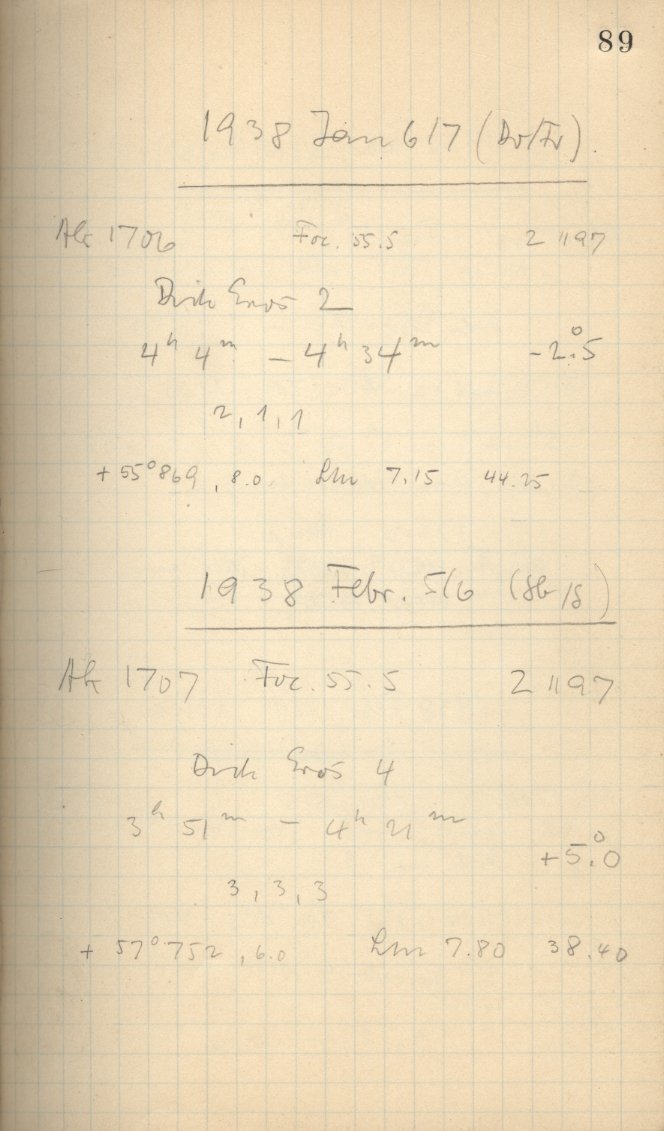 89
1938 Jan 6/7 (Do/Fr).
AK 1706 Foc. 55.5 2 1197
Eros 2
4ʰ 4ᵐ – 4ʰ 34ᵐ -2.°5
2, 1, 1
+ 55°869, 8.0 Lm 7.15 44.25
1938 Febr. 5/6 (Sb/S)
AK 1707 Foc. 55.5 2 1197
Eros 4
3ʰ 51ᵐ – 4ʰ 21ᵐ
+5.°0
3, 3, 3
+ 57°752, 6.0 Lm 7.80 38.40